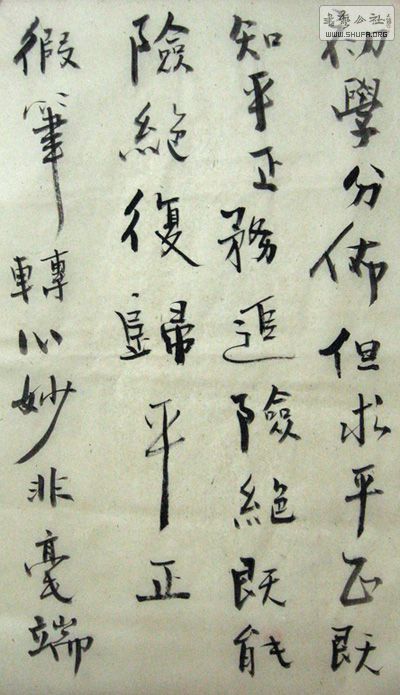 初學分佈但求平正既
知平正務追險絶既能
險絶復歸平正
假筆轉心妙非毫端
公社
WWW.SHUFA.ORG